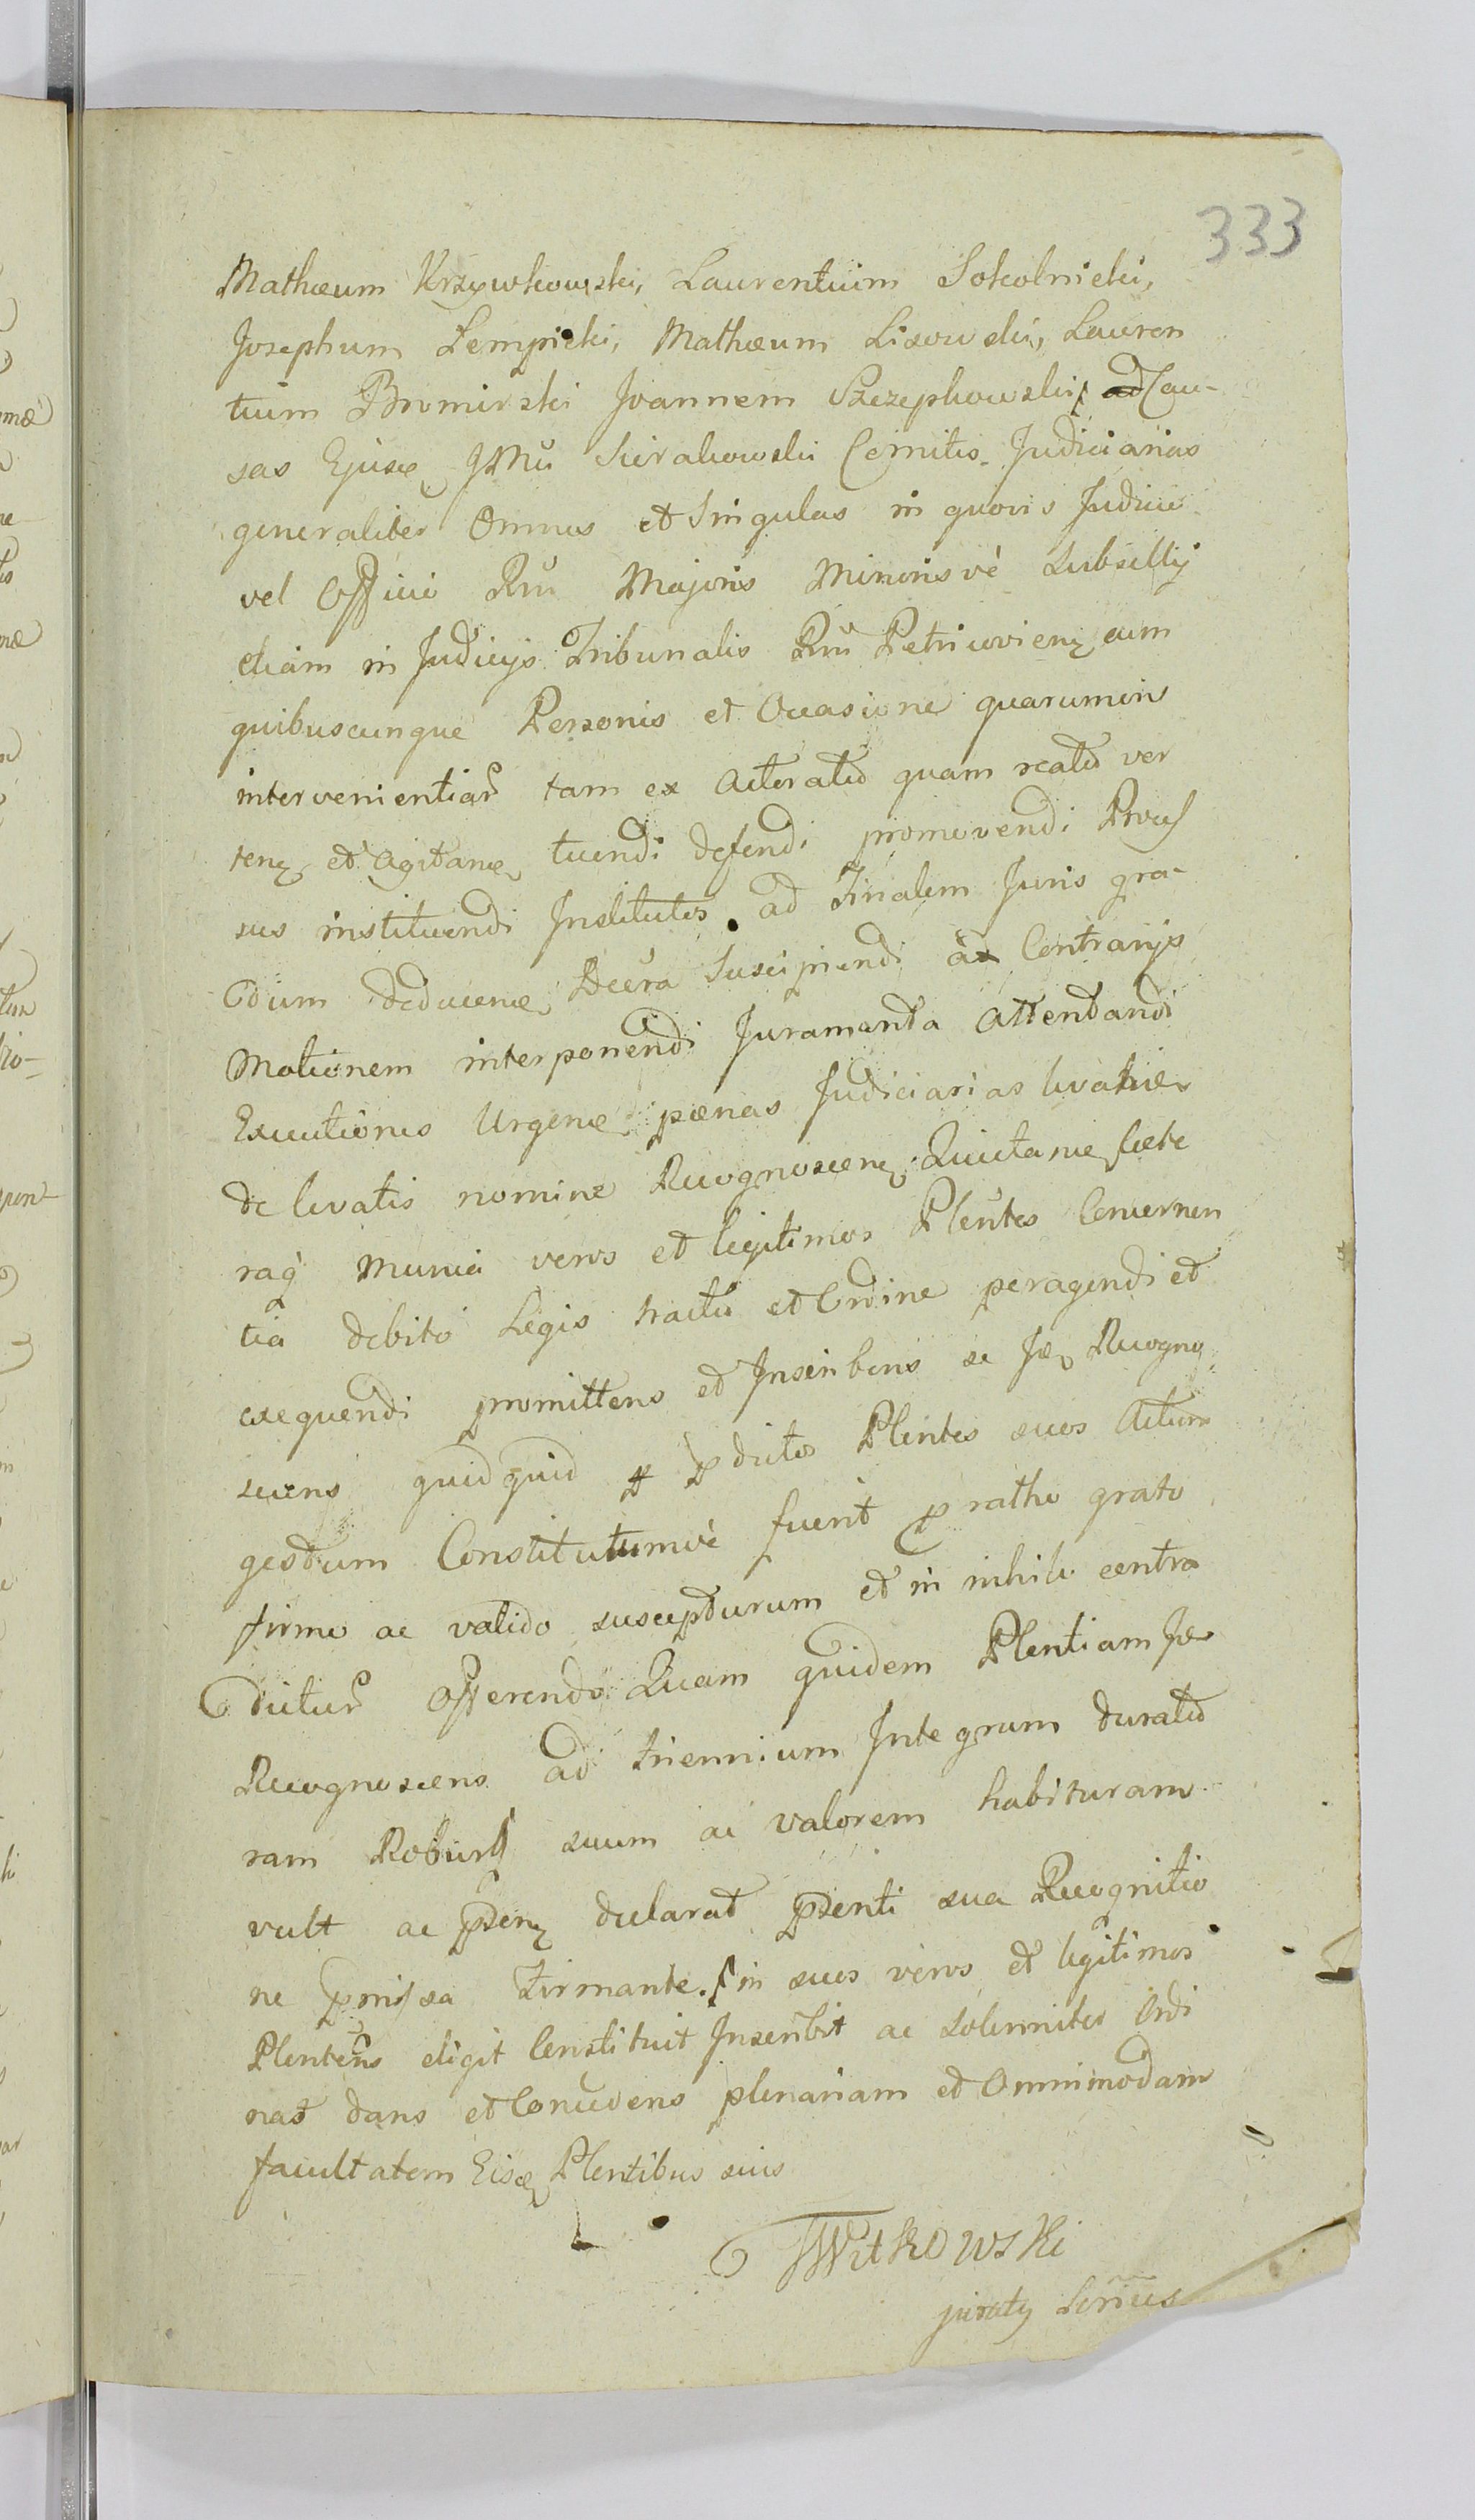 333
Mathæum Krzywkowski, Laurentium Sokolnicki,
Josephum Łempicki, Mathæum Lisowski, Lauren
tium Bromirski Joannem Szczepkowski, ad Cau-
sas Ejusq JMŭ Sierakowski Comitis Judiciarias
generaliter Omnes et Singulas in quovis Judicio
vel Officio Rni Majoris Minorisvè Subsellÿ
etiam in Judicÿs Tribunalis Rni Petricovien cum
quibuscunque Personis et Occasione quarumvis
intervenientiar tam ex Actoratu quam reatu ver
ten et Agitan tuendi defendi promovendi Proces
sus instituendi Institutos ad Finalem Juris gra-
dum deducen Decra Suscipiendi a Contrarÿs
Motionem interponendi Juramenta Attentandi
Executiones Urgen pænas Judiciarias levatio
de levatis nomine Recognoscen Quietan Cæte
raq Munia veros et legitimos Plentes Concernen
tia debito Legis tractu et Ordine peragendi et
exequendi promittens et Inscribens se Jdem Recogno
scens quidquid p pdictos Plentes suos Actum
gestum Constitutumvè fuerit p ratho grato
firmo ac valido suscepturum et in nihilo contra
dictur Offerendo Quam quidem Plentiam Jdem
Recognoscens ad triennium Integrum duratu
ram Robur suum ac valorem habituram
vult ac psen declarat psenti sua Recognitio
ne pmissa Firmante. in suos veros et legitimos
Plentens eligit Constituit Inscribit ac Solenniter Ordi
nat dans et Concedens plenariam et Omnimodam
facultatem Eisq Plentibus suis
JWitkowski